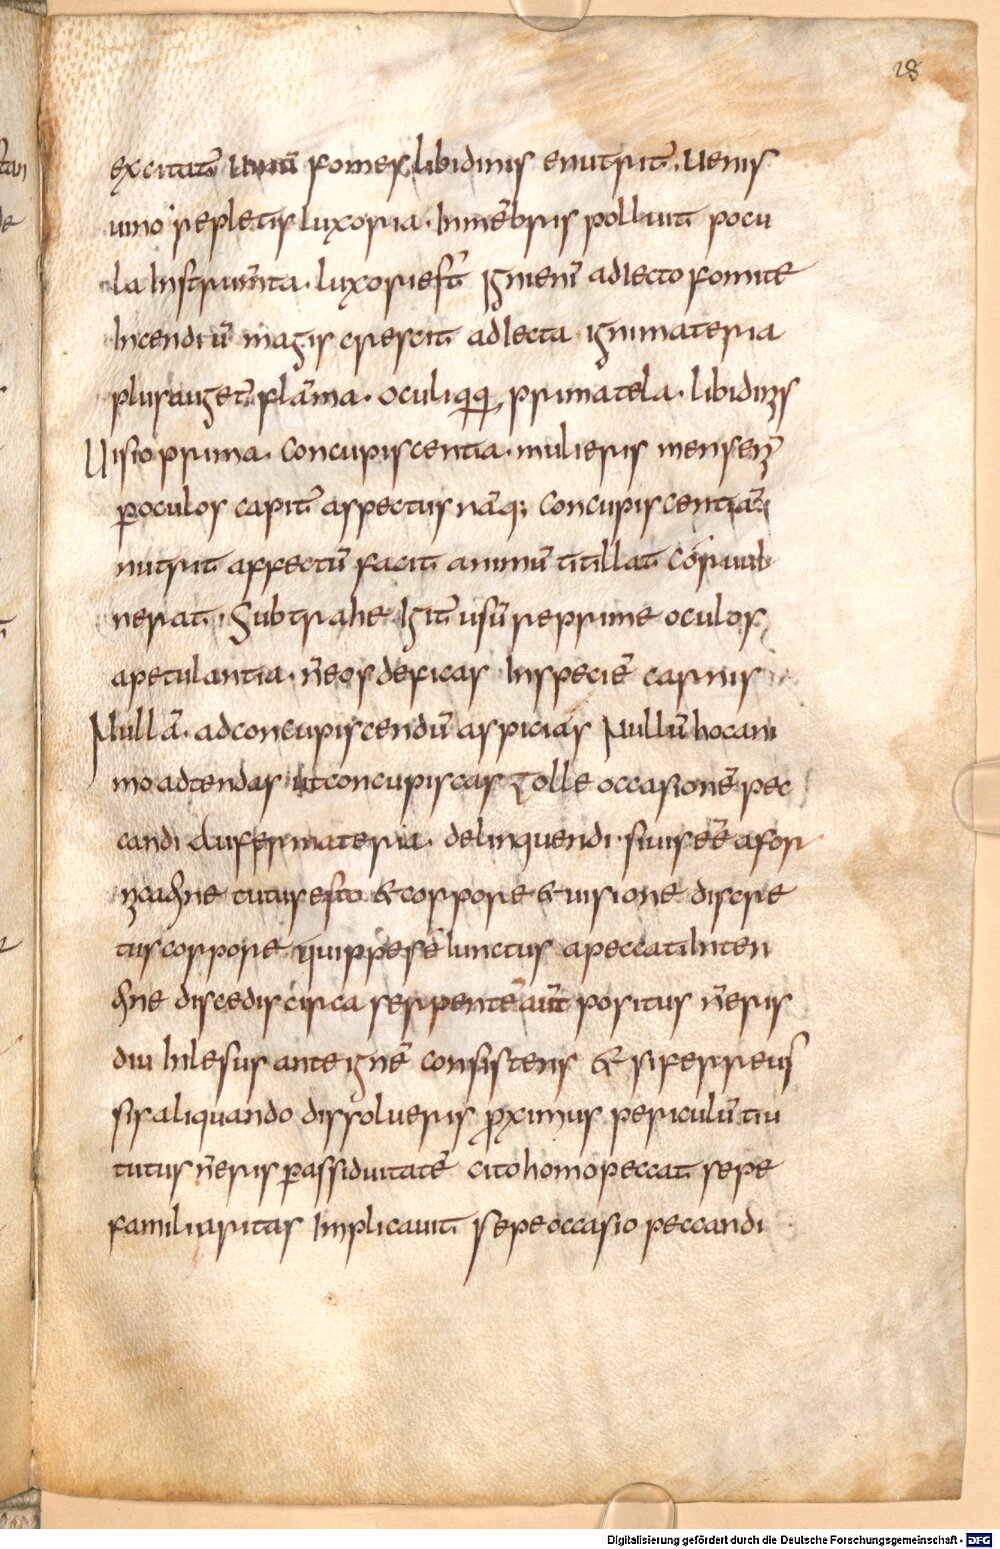 28
excitat̄ uinū fomes libidinis enutrit. uenis
uino repletis luxoria. Inmēbris polluit pocu
la Instrum̄ta. luxorie st̄ Igni enī adlecto fomite
Incendiū magis crescit adlecta igni materia
plus auget̄ flāma. oculi qq, prima tela. libidinis
Uisio prima. Concupiscentia. mulieris mensenī
ꝑ oculos capit̄ aspectus nāq; concupiscentiā
nutrit affectū facit animū titillat cor uul
nerat. Subtrahe Igit̄ usū reprime oculos
apetulantia. n̄ eos deficas In speciē carnis
Nullā. ad concupiscendū aspicias Nullū hoc ani
mo adtendas ut concupiscas Tolle occasionē pec
candi aufer materia. delinquendi. si uis eē a for
nicatione tutus esto & corpore & uisione discre
tus corpore quippe seiunctus a peccati Inten
tione discedis circa serpentē aūt positus n̄ eris
diu Inlesus ante ignē consistens & si ferreus
sis aliquando dissolueris proximus periculū tiu
tutus n̄ eris ꝑ assiduitatē cito homo peccat sepe
familiaritas Implicauit sepe occasio peccandi
Digitalisierung gefördert durch die Deutsche Forschungsgemeinschaft - DFG